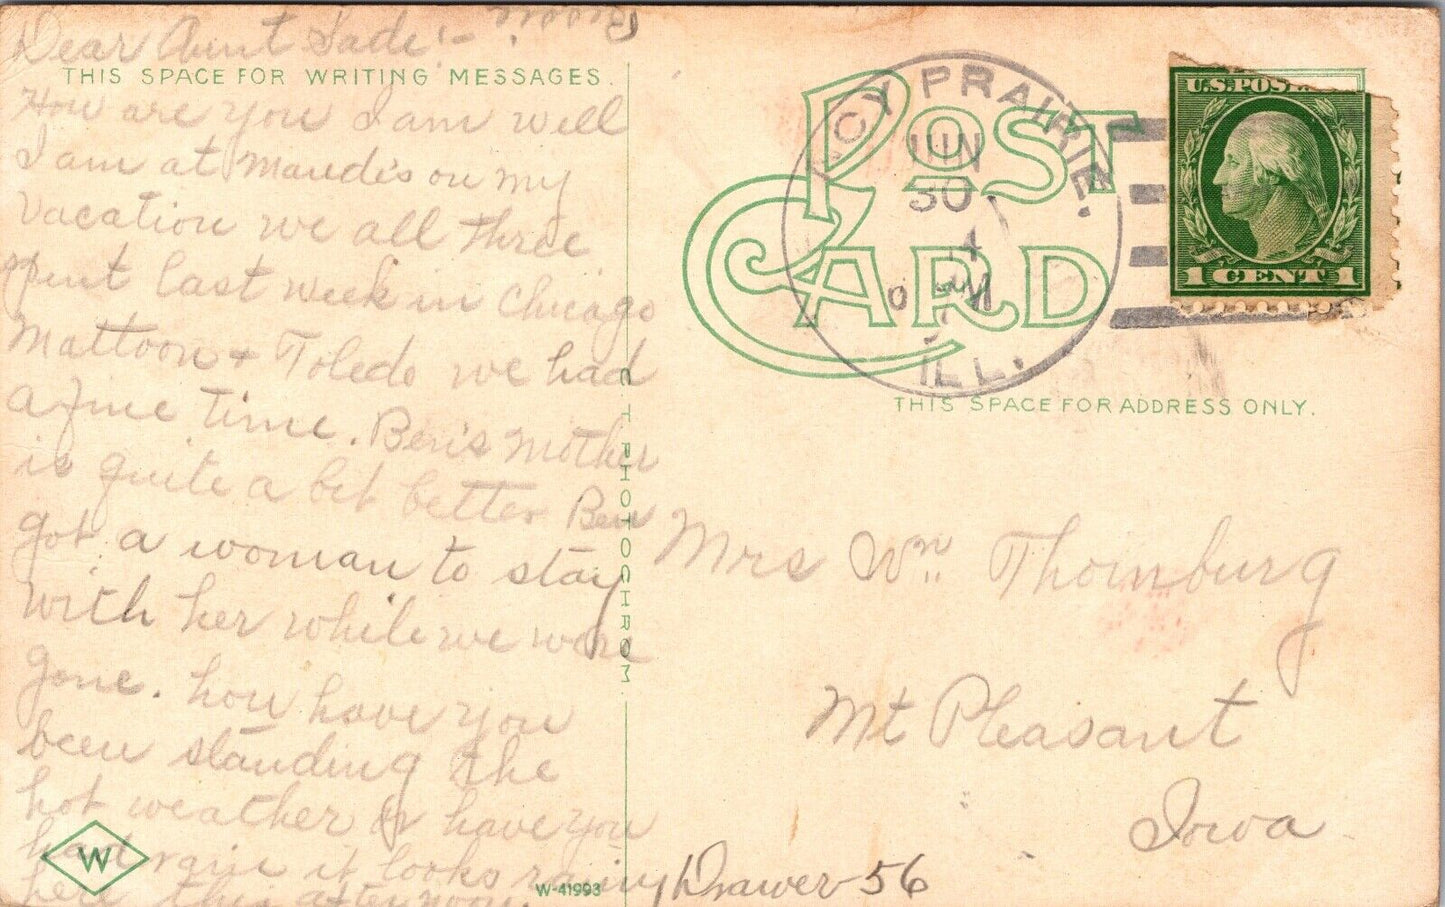 Dear Aunt Sade:-
THIS SPACE FOR WRITING MESSAGES.
How are you I am well
I am at Maude's on my
vacation we all three
spent last week in Chicago
Mattoon + Toledo we had
a fine time. Ben's Mother
is quite a bit better Ben
got a woman to stay
with her while we were
gone. how have you
been standing the
hot weather or have you
had rain it looks rainy
here this afternoon.
W
W-41993
C T PHOTOCHROM
POST CARD
PRAIRIE.
JUN
30
4
PM
ILL.
U.S. POS
1 CENT 1
THIS SPACE FOR ADDRESS ONLY.
Mrs Wm Thornburg
Mt Pleasant
Iowa
Drawer 56